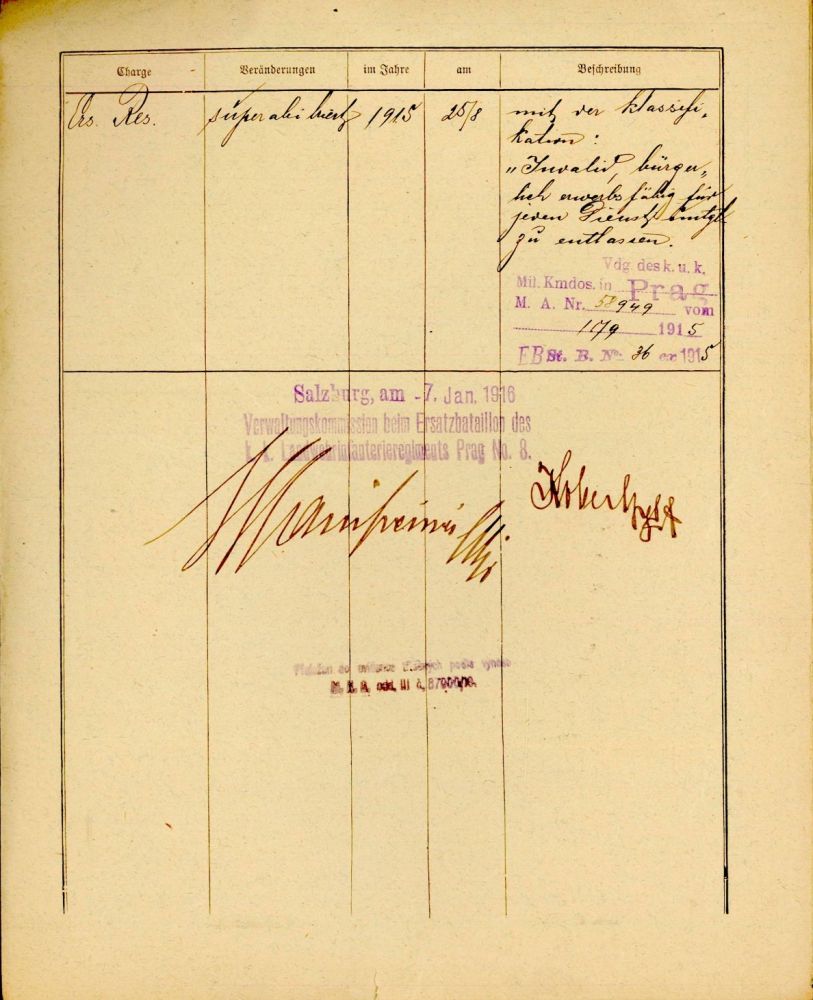 Charge Veränderungen im Jahre am Beschreibung
Ers. Res. superarbitriert 1915 25/8 mit der Klassifi-
kation:
„Invalid", bürger-
lich erwerbsfähig für
jeden Dienst
zu entlassen.
Vdg. des k. u. k.
Mil. Kmdos. in Prag
M. A. Nr. 58949 vom
11/9 1915
EB St. B. No. 36 ex 1915
Salzburg, am -7. Jan. 1916
Verwaltungskommission beim Ersatzbataillon des
k. k. Landwehrinfanterieregiments Prag No. 8.